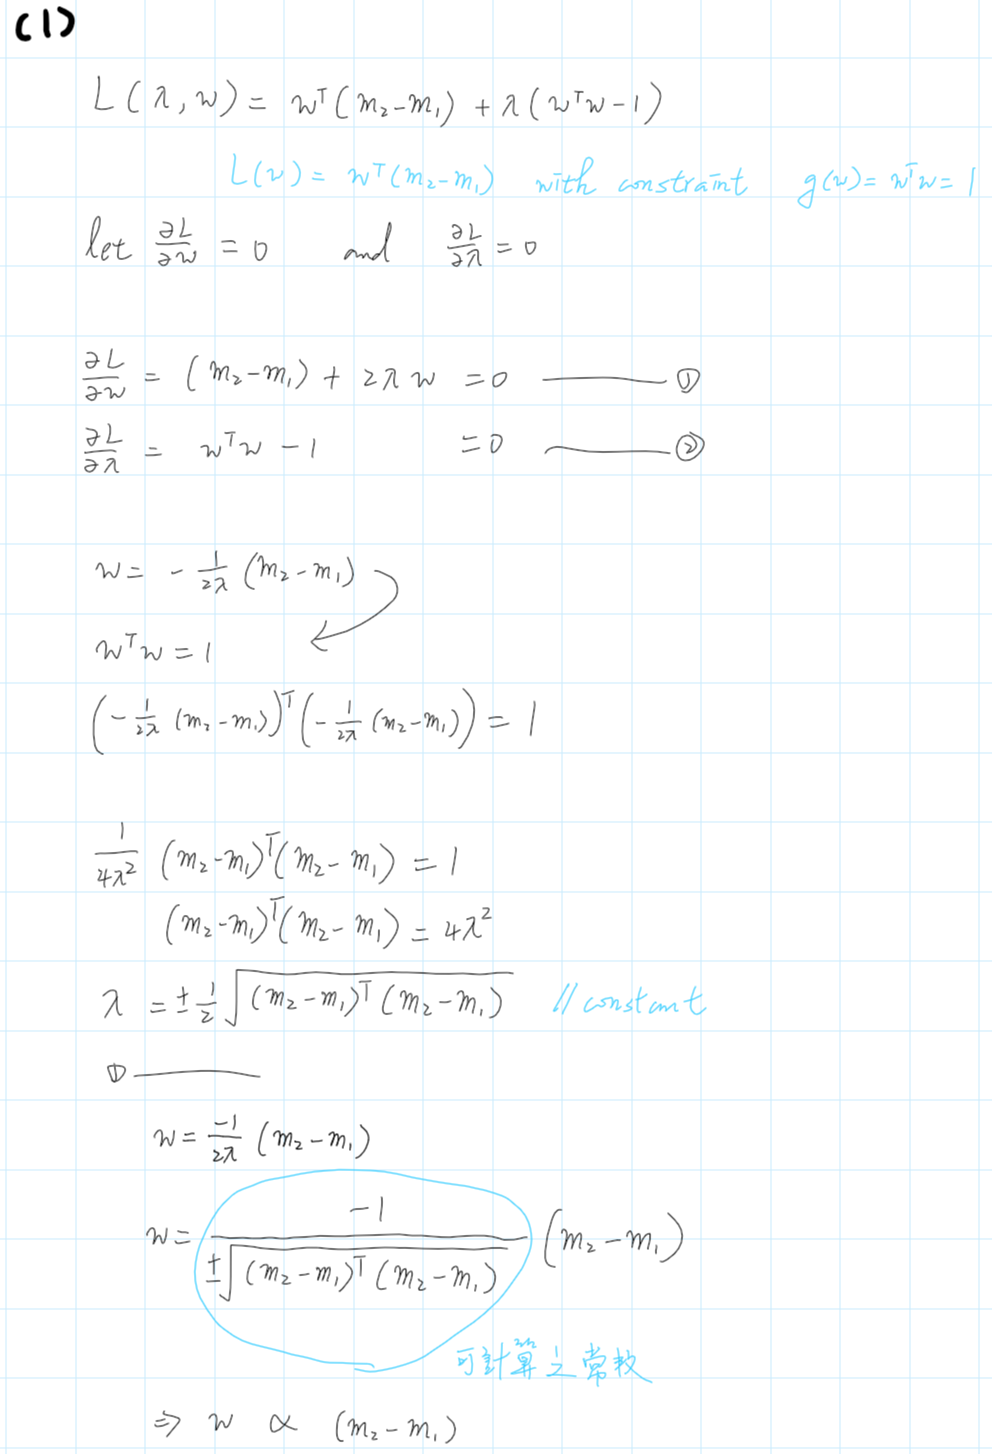 (1)
L(λ, w) = wᵀ(m₂-m₁) + λ(wᵀw-1)
L(w) = wᵀ(m₂-m₁) with constraint g(w) = wᵀw = 1
let ∂L/∂w = 0 and ∂L/∂λ = 0
∂L/∂w = (m₂-m₁) + 2λw = 0 —— ①
∂L/∂λ = wᵀw - 1 = 0 —— ②
w = - 1/2λ (m₂-m₁)
wᵀw = 1
(- 1/2λ (m₂-m₁))ᵀ(- 1/2λ (m₂-m₁)) = 1
1/4λ² (m₂-m₁)ᵀ(m₂-m₁) = 1
(m₂-m₁)ᵀ(m₂-m₁) = 4λ²
λ = ± 1/2 √((m₂-m₁)ᵀ(m₂-m₁)) // constant
① ——
w = -1/2λ (m₂-m₁)
w = -1/±√((m₂-m₁)ᵀ(m₂-m₁)) (m₂-m₁)
可計算之常数
⇒ w ∝ (m₂-m₁)